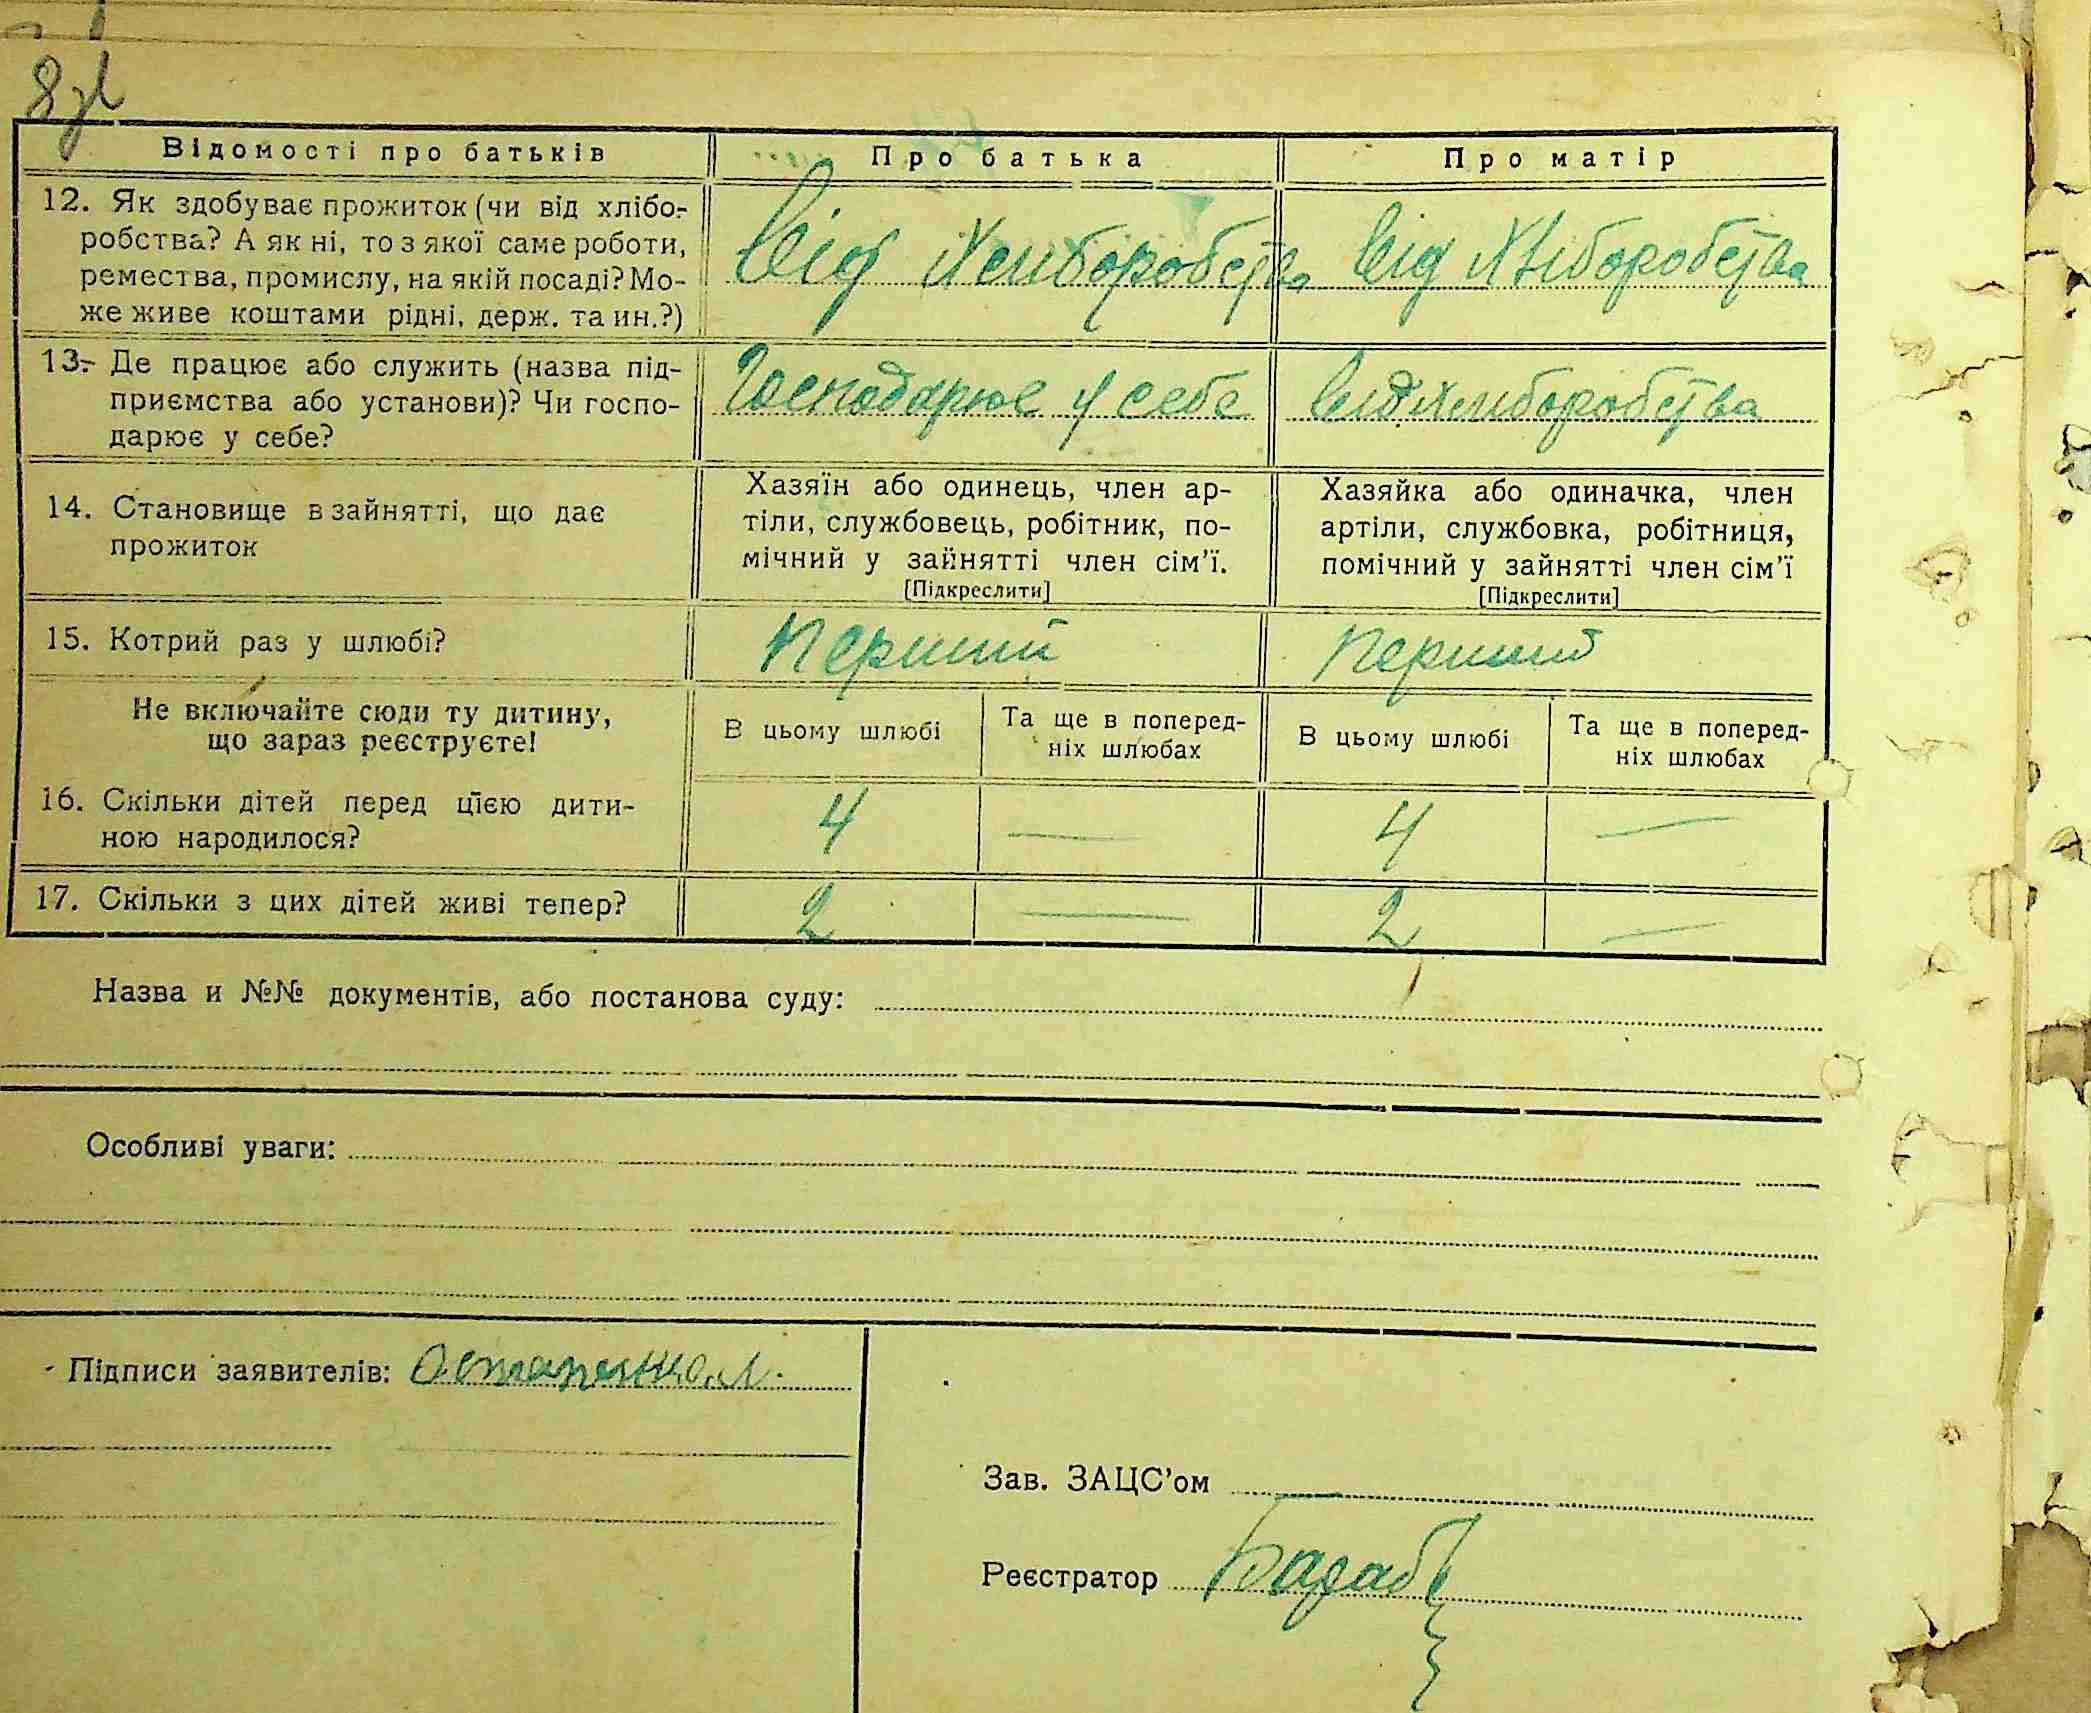 Відомості про батьків Про батька Про матір
12. Як здобуває прожиток (чи від хлібо-
робства? А як ні, то з якої саме роботи,
ремества, промислу, на якій посаді? Мо-
же живе коштами рідні, держ. та ин.?)
Від Хлиборобства Від Хліборобства
13. Де працює або служить (назва під-
приємства або установи)? Чи госпо-
дарює у себе?
Господарює у себе Від хлиборобства
14. Становище в зайнятті, що дає
прожиток
Хазяїн або одинець, член ар-
тіли, службовець, робітник, по-
мічний у зайнятті член сім'ї.
[Підкреслити]
Хазяйка або одиначка, член
артіли, службовка, робітниця,
помічний у зайнятті член сім'ї
[Підкреслити]
15. Котрий раз у шлюбі? Перший Перший
Не включайте сюди ту дитину,
що зараз реєструєте!
В цьому шлюбі
Та ще в поперед-
ніх шлюбах
В цьому шлюбі
Та ще в поперед-
ніх шлюбах
16. Скільки дітей перед цією дити-
ною народилося?
4 — 4 —
17. Скільки з цих дітей живі тепер? 2 — 2 —
Назва и №№ документів, або постанова суду:
Особливі уваги:
Підписи заявителів:
Зав. ЗАЦС'ом
Реєстратор